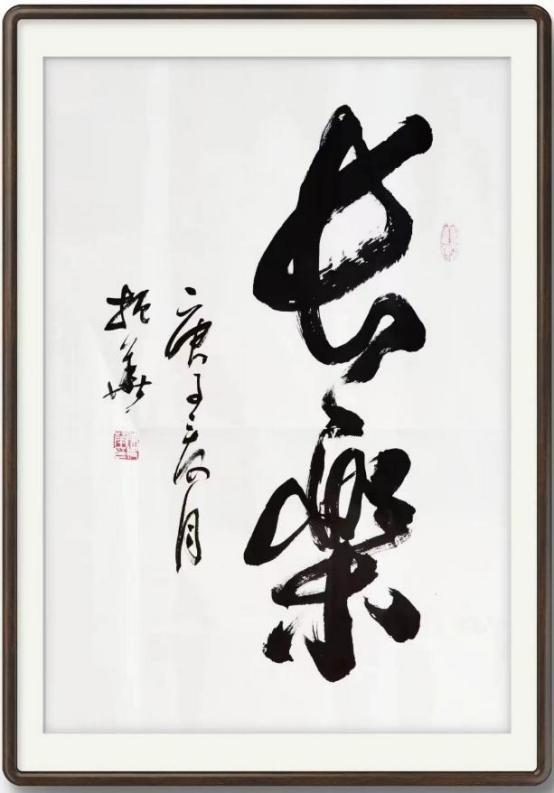 長樂
庚子春月
振華